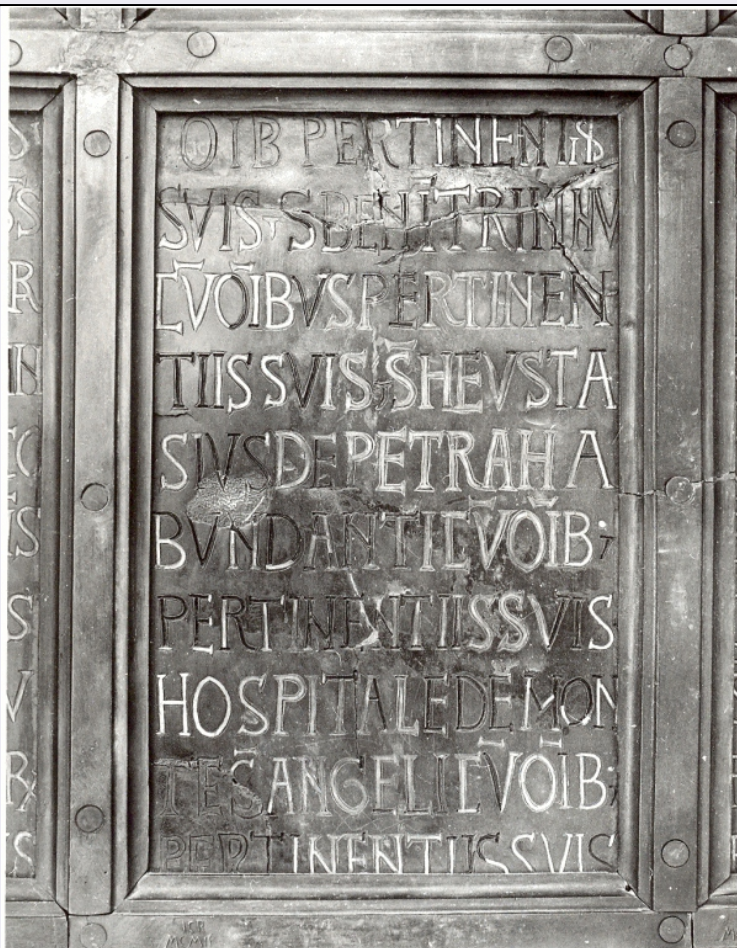 OIB PERTINENTIIS
SVIS S BENITI TRIHINHV
CV̄ OĪBVS PERTINEN
TIIS SVIS S̄ HEVSTA
SIVS DE PETRA HA
BVNDANTI CV̄ OĪB;
PERTINENTIIS SVIS
HOSPITALE DE MON
TE S̄ ANGELI CV̄ OĪB;
PERTINENTIIS SVIS